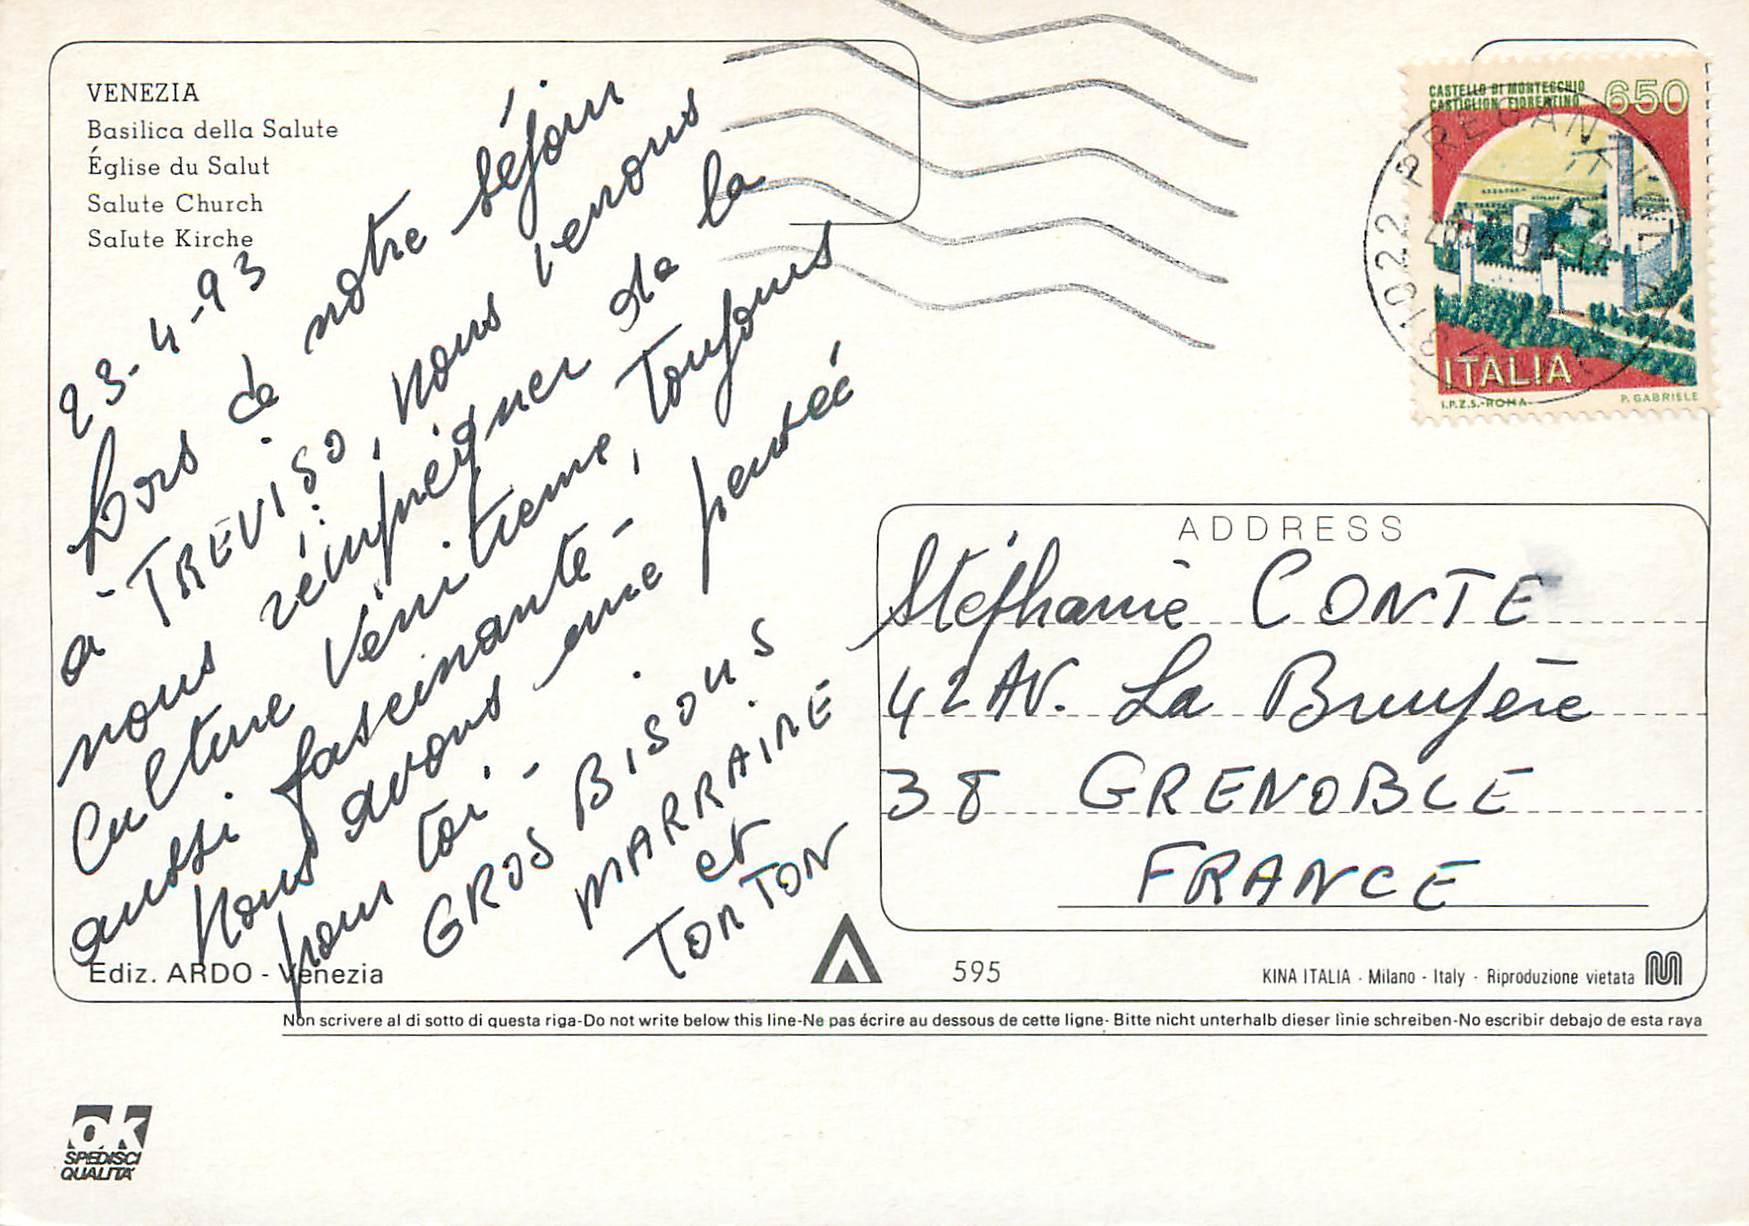 VENEZIA
Basilica della Salute
Église du Salut
Salute Church
Salute Kirche
23-4-93
Lors de notre séjour
à TREVISO, nous venons
nous réimprégner de la
Culture Vénitienne, toujours
aussi fascinante -
Nous avons une pensée
pour toi -
GROS BISOUS
MARRAINE
et
TONTON
CASTELLO DI MONTECCHIO
CASTIGLION FIORENTINO
650
ITALIA
I.P.Z.S.-ROMA
P. GABRIELE
31022 PREGANZIOL
ADDRESS
Stéphanie CONTE
42 AV. La Bruyère
38 GRENOBLE
FRANCE
Ediz. ARDO - Venezia
595
KINA ITALIA - Milano - Italy - Riproduzione vietata
Non scrivere al di sotto di questa riga-Do not write below this line-Ne pas écrire au dessous de cette ligne- Bitte nicht unterhalb dieser linie schreiben-No escribir debajo de esta raya
OK
SPEDISCI
QUALITÀ